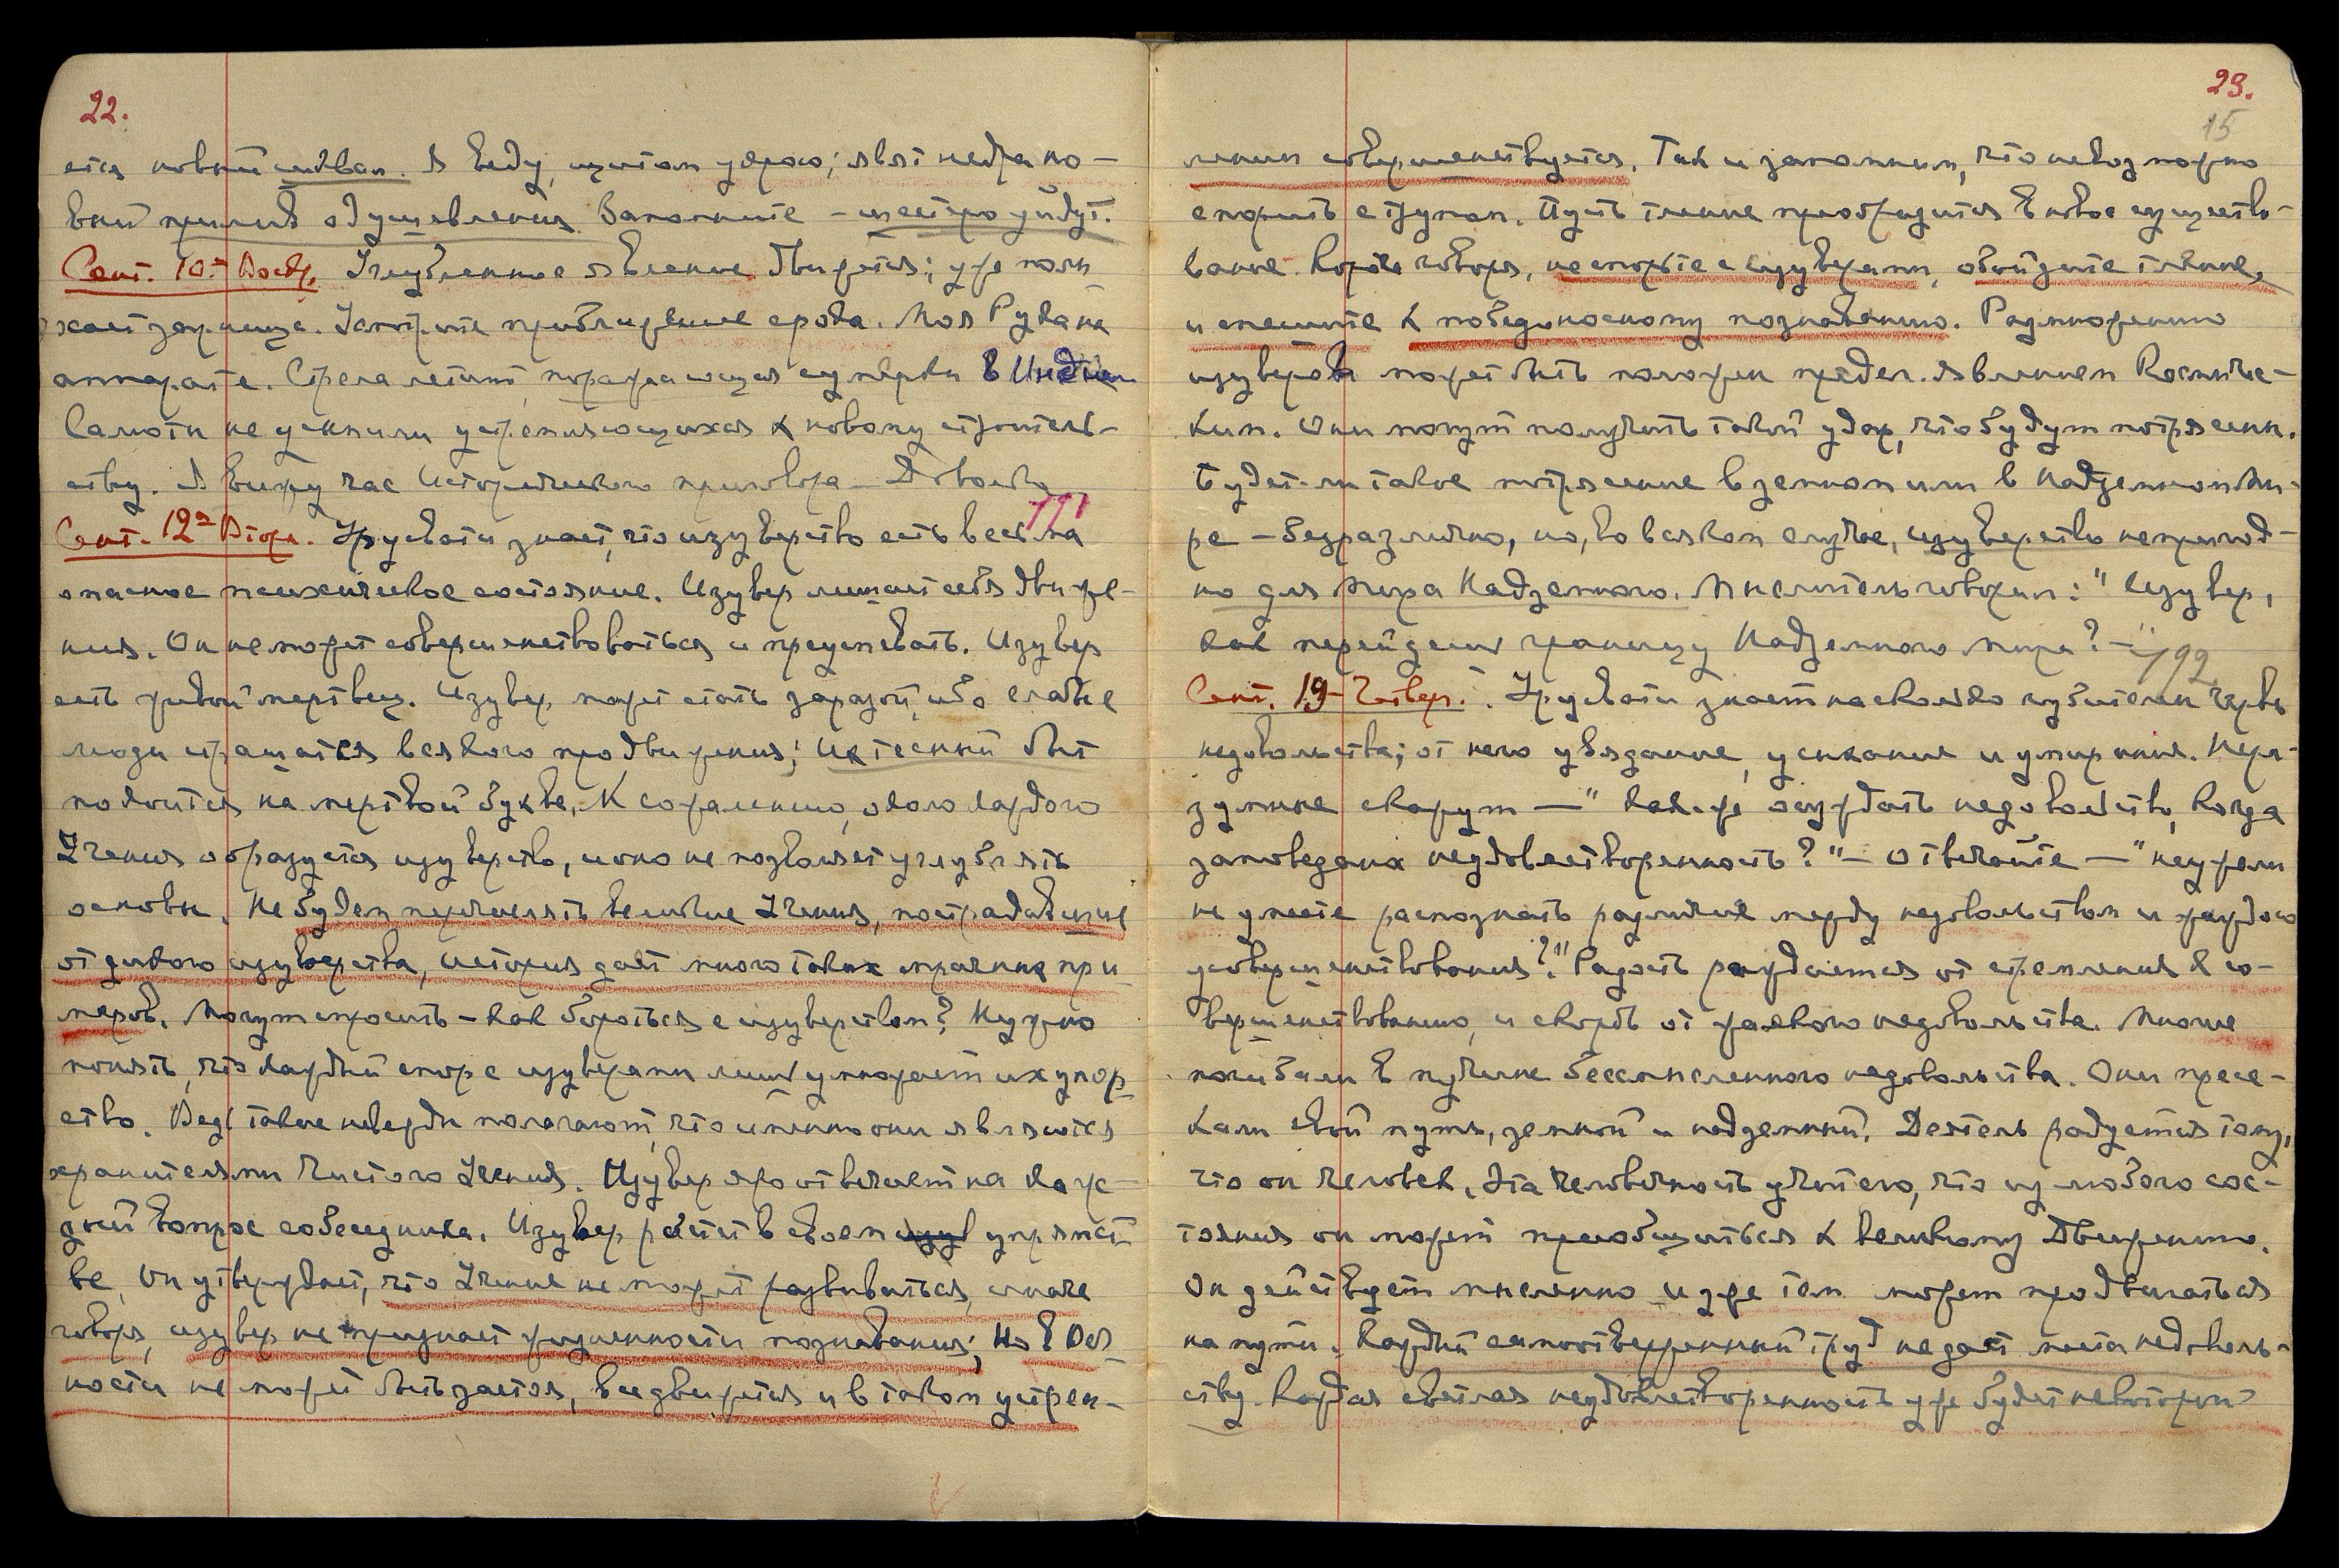 22.
ется новый шквал. Я веду, щитом укрою;
Запомните - шестро уйдут.
Сент. 10-е Воскр. Углубленное явление движется; уже полы
хает зарница. Усмотрите приближение срока. Моя Рука на
аппарате. Стрела летит, поражающая сумерки в Индии
Самоты не усыпили устремляющихся к новому строитель-
ству. Я вижу час Исторического приговора — Довольно
791
Сент. 12-е Втор. Урусвати знает, что изуверство есть весьма
опасное психическое состояние. Изувер лишает себя движе-
ния. Он не может совершенствоваться и преуспевать. Изувер
есть живой мертвец. Изувер может стать заразой, ибо слабые
люди страшатся всякого продвижения; их тесный быт
покоится на мертвой букве. К сожалению, около каждого
Учения образуется изуверство, и оно не позволяет углублять
основы. Не будем перечислять великие Учения, пострадавшие
от дикого изуверства, история дает много таких мрачных при
меров. Могут спросить - как бороться с изуверством? Нужно
понять, что каждый спор с изуверами лишь умножает их упор
ство. Ведь такие невежды полагают, что именно они являются
хранителями чистого Учения. Изувер яро отвечает на каж-
дый вопрос собеседника. Изувер растет в своем упрямст-
ве. Он утверждает, что Учение не может развиваться, иначе
говоря, изувер не признает жизненности познавания; Но в Вел
ности не может быть застоя, все движется и в таком устрем-
23.
15
лении совершенствуется. Так и запомним, что невозможно
спорить с трупом. Пусть тление преобразится в новое существо-
вание. Короче говоря, не спорьте с изуверами, обойдите тление,
и спешите к победоносному познаванию. Размножению
изуверов может быть положен предел явлением Космичес-
ким. Они могут получить такой удар, что будут потрясены.
Будет ли такое потрясение в земном или в Надземном Ми-
ре - безразлично, но, во всяком случае, изуверство непригод-
но для Мира Надземного. Мыслитель говорил: "Изувер,
как перейдешь границу Надземного Мира? —"
792
Сент. 19 - Четвер. Урусвати знает насколько губителен червь
недовольства; от него увядание, усыхание и умирание. Нера-
зумные скажут — "Как же осуждать недовольство, когда
заповедана неудовлетворенность?" — Отвечайте — "неужели
не умеете распознать различие между недовольством и жаждою
усовершенствования?" Радость рождается от стремления к со-
вершенствованию, и скорбь от жалкого недовольства. Многие
погибали в пучине бессмысленного недовольства. Они пресе-
кали свой путь, земной и надземный. Деятель радуется тому,
что он человек. Эта человечность учит его, что из любого сос-
тояния он может приобщиться к великому Движению.
Он действует мысленно и уже тем может продвигаться
на пути. Каждый самоотверженный труд не дает места недоволь-
ству. Каждая светлая неудовлетворенность уже будет некоторой